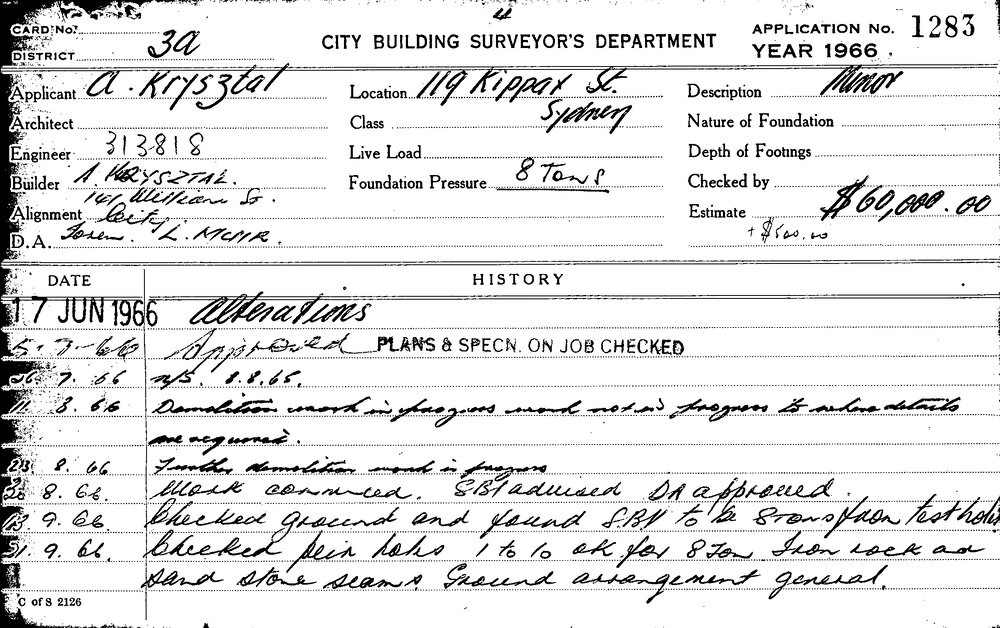 4
CARD No. 3a CITY BUILDING SURVEYOR'S DEPARTMENT APPLICATION No. 1283
DISTRICT YEAR 1966.
Applicant A. Krysztal Location 119 Kippax St. Description Minor
Architect Class Sydney Nature of Foundation
Engineer 313818 Live Load Depth of Footings
Builder A. KRYSZTAL. Foundation Pressure 8 Tons Checked by
141 William St.
Alignment City. Estimate $60,000.00
D.A. L. + $500.00
DATE HISTORY
17 JUN 1966 Alterations
5.7.66 Approved PLANS & SPECN. ON JOB CHECKED
26.7.66 n/s. 8.8.65.
11.8.66 Demolition work in progress work not in progress to where details
are required.
23.8.66 Further demolition work in progress
26.8.66. Work commced. SBI advised DA approved.
13.9.66. Checked ground and found to be 8 tons from test holes
21.9.66. Checked peir holes 1 to 10 ok for 8 Ton Iron rock and
sand stone seams. Ground arrangement general.
C of S 2126